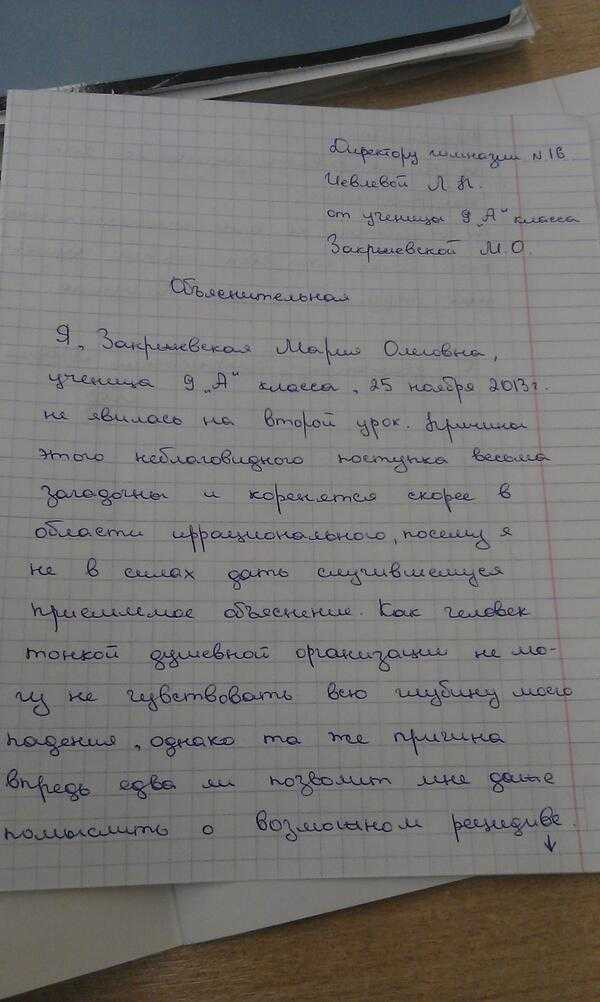 Директору гимназии № 18
Иевлевой Л.П.
от ученицы 9 „А“ класса
Закржевской М.О.
Объяснительная
Я, Закржевская Мария Олеговна,
ученица 9 „А“ класса, 25 ноября 2013 г.
не явилась на второй урок. Причины
этого неблаговидного поступка весьма
загадочны и коренятся скорее в
области иррационального, посему я
не в силах дать случившемуся
приемлемое объяснение. Как человек
тонкой душевной организации не мо-
гу не чувствовать всю глубину моего
падения, однако та же причина
впредь едва ли позволит мне даже
помыслить о возможном рецидиве.
↓